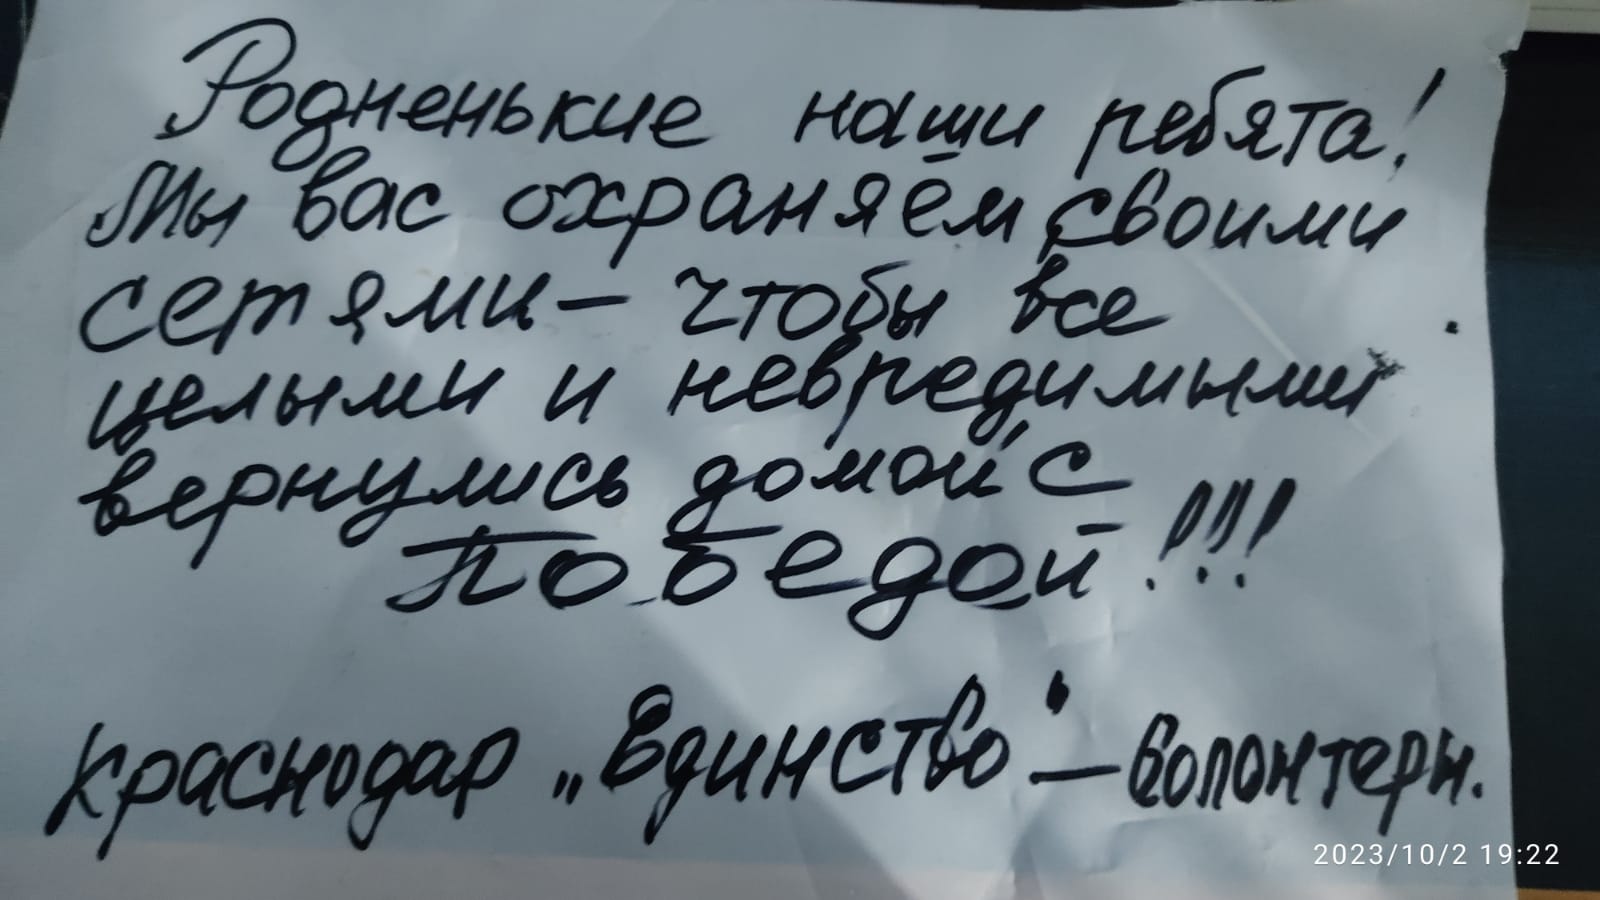 Родненькие наши ребята!
Мы вас охраняем своими
сетями - чтобы все
целыми и невредимыми
вернулись домой с
Победой!!!
Краснодар „Единство" - волонтеры.
2023/10/2 19:22